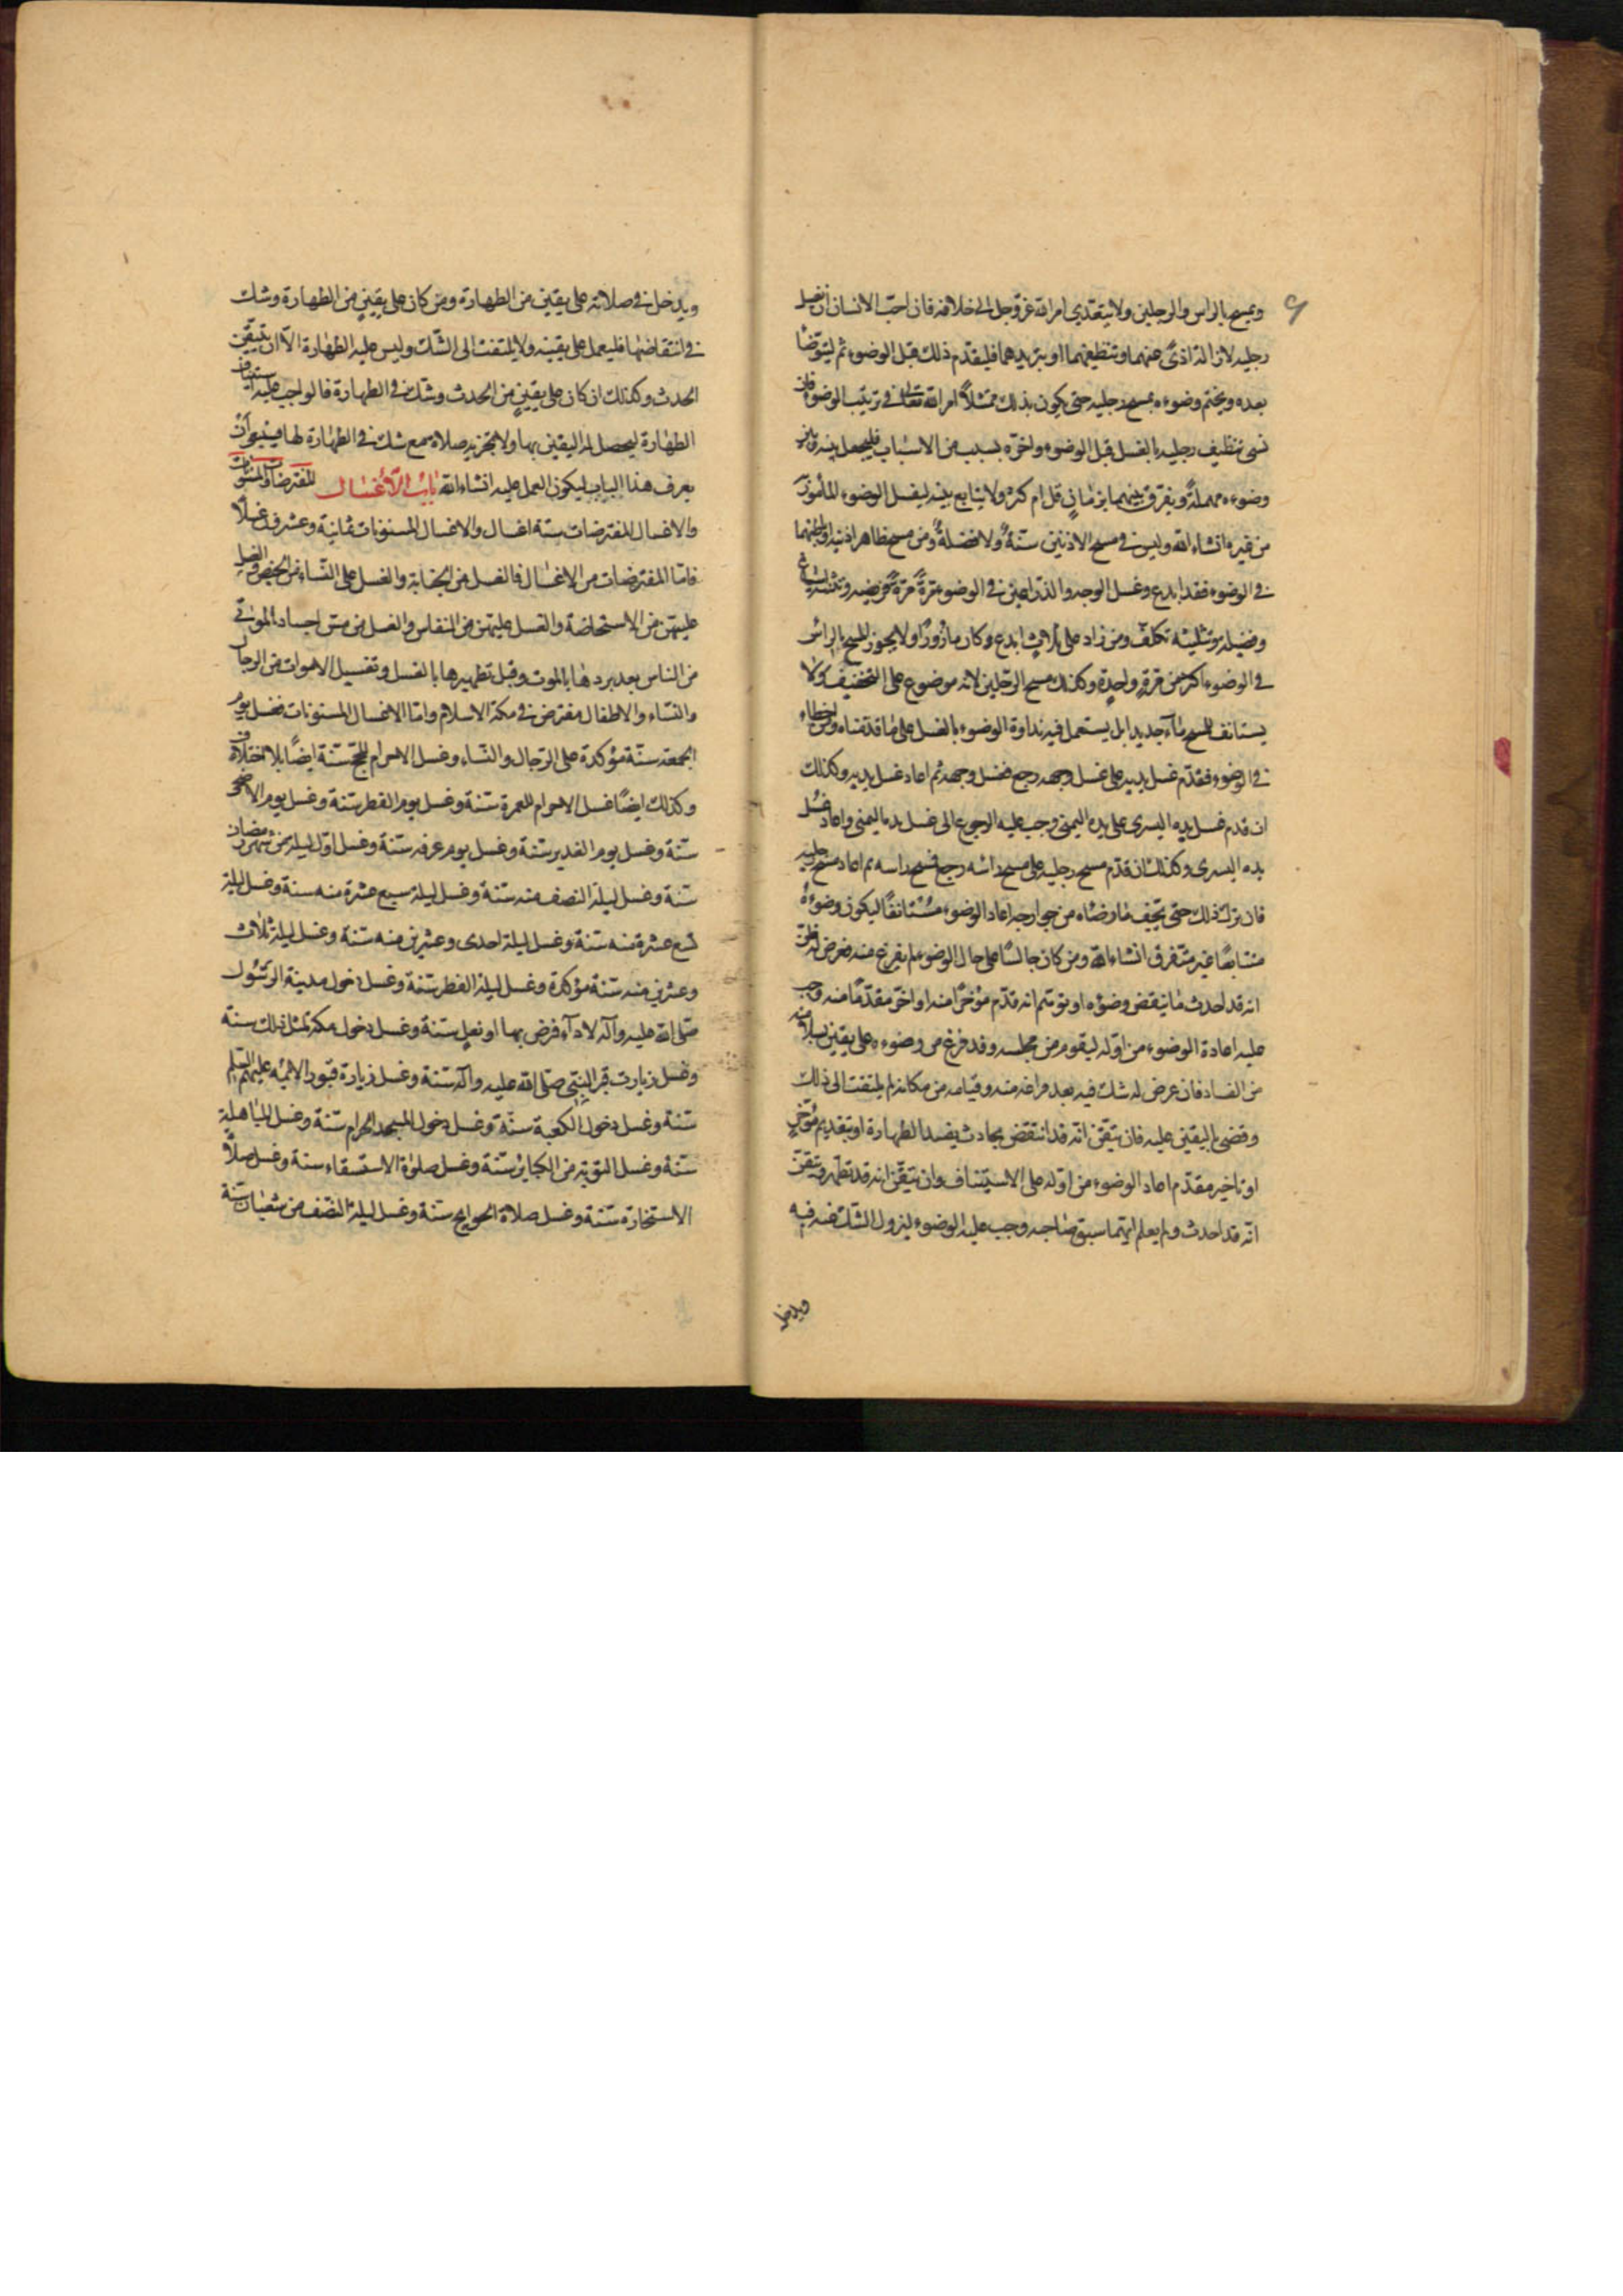 ويمسح بالراس والرجلين ولا يتعدى امر الله عزوجل الى خلافه فان احبّ الانسان ان يغسل
رجليه لازالة اذىً عنهما وتنظيفهما او تبريدهما فليقدّم ذلك قبل الوضوء ثم ليتوضأ
بعده ويختم وضوءه بمسح رجليه حتى يكون بذلك ممتثلاً امر الله تعالى في ترتيب الوضوء فان
نسى تنظيف رجليه بالغسل قبل الوضوء واخّره بسبب من الاسباب فليجعل بينه وبين
وضوءه مهملة ويفرق بينهما بزمانٍ قل ام كثر ولا يتابع بينه ليفصل الوضوء المأمور
من غيره انشاء الله وليس في مسح الاذنين سنةٌ ولا فضيلةٌ ومن مسح ظاهر اذنيه او باطنهما
في الوضوء فقد ابدع وغسل الوجه والذراعين في الوضوء مرّةً مرّةً فريضه وتثنيته اسباغ
وفضيلة وتثليثه تكلّف ومن زاد على ثلاثٍ ابدع وكان مأزورًا ولا يجوز المسح بالراس
في الوضوء اكثر من مرّةٍ واحدةٍ وكذلك مسح الرجلين لانه موضوع على التخفيف ولا
يستانف للمسح مآء جديدا بل يستعمل فيه نداوة الوضوء بالغسل على ما قدّمناه ومن اخطاء
في الوضوء فقدّم غسل يديه على غسل وجهه رجع فغسل وجهه ثم اعاد غسل يديه وكذلك
ان قدم غسل يده اليسرى على يده اليمنى وجب عليه الرجوع الى غسل يده اليمنى واعاد غسل
يده اليسرى وكذلك ان قدّم مسح رجليه على مسح راسه رجع فمسح راسه ثم اعاد مسح رجليه
فان ترك ذلك حتى يجف ما وضّاه من جوارحه اعاد الوضوء مستانفًا ليكون وضوءه
متتابعًا غير متفرق انشاء الله ومن كان جالسًا على حال الوضوء لم يفرغ منه فعرض له ظن
انه قد احدث ما ينقض وضوءه او توهّم انه قدّم مؤخرًا منه او اخّر مقدّمًا منه وجب
عليه اعادة الوضوء من اوّله ليقوم من مجلسه وقد فرغ من وضوءه على يقين بسلامته
من الفساد فان عرض له شك فيه بعد فراغه منه وقيامه من مكانه لم يلتفت الى ذلك
وقضى باليقين عليه فان تيقّن انّه قد انتقض بحادث يفسد الطهارة او بتقديم مؤخّر
او تاخير مقدّم اعاد الوضوء من اوّله على الاستيناف وان تيقّن انه قد تطهّر وتيقّن
انّه قد احدث ولم يعلم ايّهما سبق صاحبه وجب عليه الوضوء ليزول الشك عنه فيه
ويدخل
ويدخل في صلاته على يقين من الطهارة ومن كان على يقينٍ من الطهارة وشك
في انتقاضها فليعمل على يقينه ولا يلتفت الى الشّك وليس عليه الطهارة الّا ان يتيقّن
الحدث وكذلك ان كان على يقينٍ من الحدث وشك في الطهارة فالواجب عليه استيناف
الطهارة ليحصل له اليقين بها ولا تجزيه صلاة مع شك في الطهارة لها فينبغي ان
يعرف هذا الباب ليكون العمل عليه انشاء الله باب الاغسال المفترضات والمسنونات
والاغسال المفترضات ستة اغسال والاغسال المسنونات ثمانية وعشرون غسلًا
فامّا المفترضات من الاغسال فالغسل من الجنابة والغسل على النّساء من الحيض والغسل
عليهنّ من الاستحاضة والغسل عليهنّ من النفاس والغسل من مسّ اجساد الموتى
من الناس بعد بردها بالموت وقبل تطهيرها بالغسل وتغسيل الاموات من الرجال
والنّساء والاطفال مفترض في ملة الاسلام وامّا الاغسال المسنونات فغسل يوم
الجمعة سنّة مؤكدة على الرّجال والنّساء وغسل الاحرام للحج سنّة ايضًا بلا اختلاف
وكذلك ايضًا غسل الاحرام للعمرة سنّة وغسل يوم الفطر سنّة وغسل يوم الاضحى
سنّة وغسل يوم الغدير سنّة وغسل يوم عرفه سنّة وغسل اوّل ليلة من شهر رمضان
سنّة وغسل ليلة النصف منه سنّة وغسل ليلة سبع عشرة منه سنة وغسل ليلة
تسع عشرة منه سنّة وغسل ليلة احدى وعشرين منه سنّة وغسل ليلة ثلاث
وعشرين منه سنّة مؤكدة وغسل ليلة الفطر سنّة وغسل دخول مدينة الرسول
صلى الله عليه وآله لادآء فرض بها او نفلٍ سنّة وغسل دخول مكة لمثل ذلك سنّة
وغسل زيارت قبر النبيّ صلى الله عليه واله سنّة وغسل زيارة قبور الائمه عليهم السلم
سنّة وغسل دخول الكعبة سنّة وغسل دخول المسجد الحرام سنّة وغسل المباهلة
سنّة وغسل التوبة من الكباير سنّة وغسل صلوة الاستسقاء سنة وغسل صلاة
الاستخارة سنّة وغسل صلاة الحوايج سنّة وغسل ليلة النّصف من شعبان سنّة